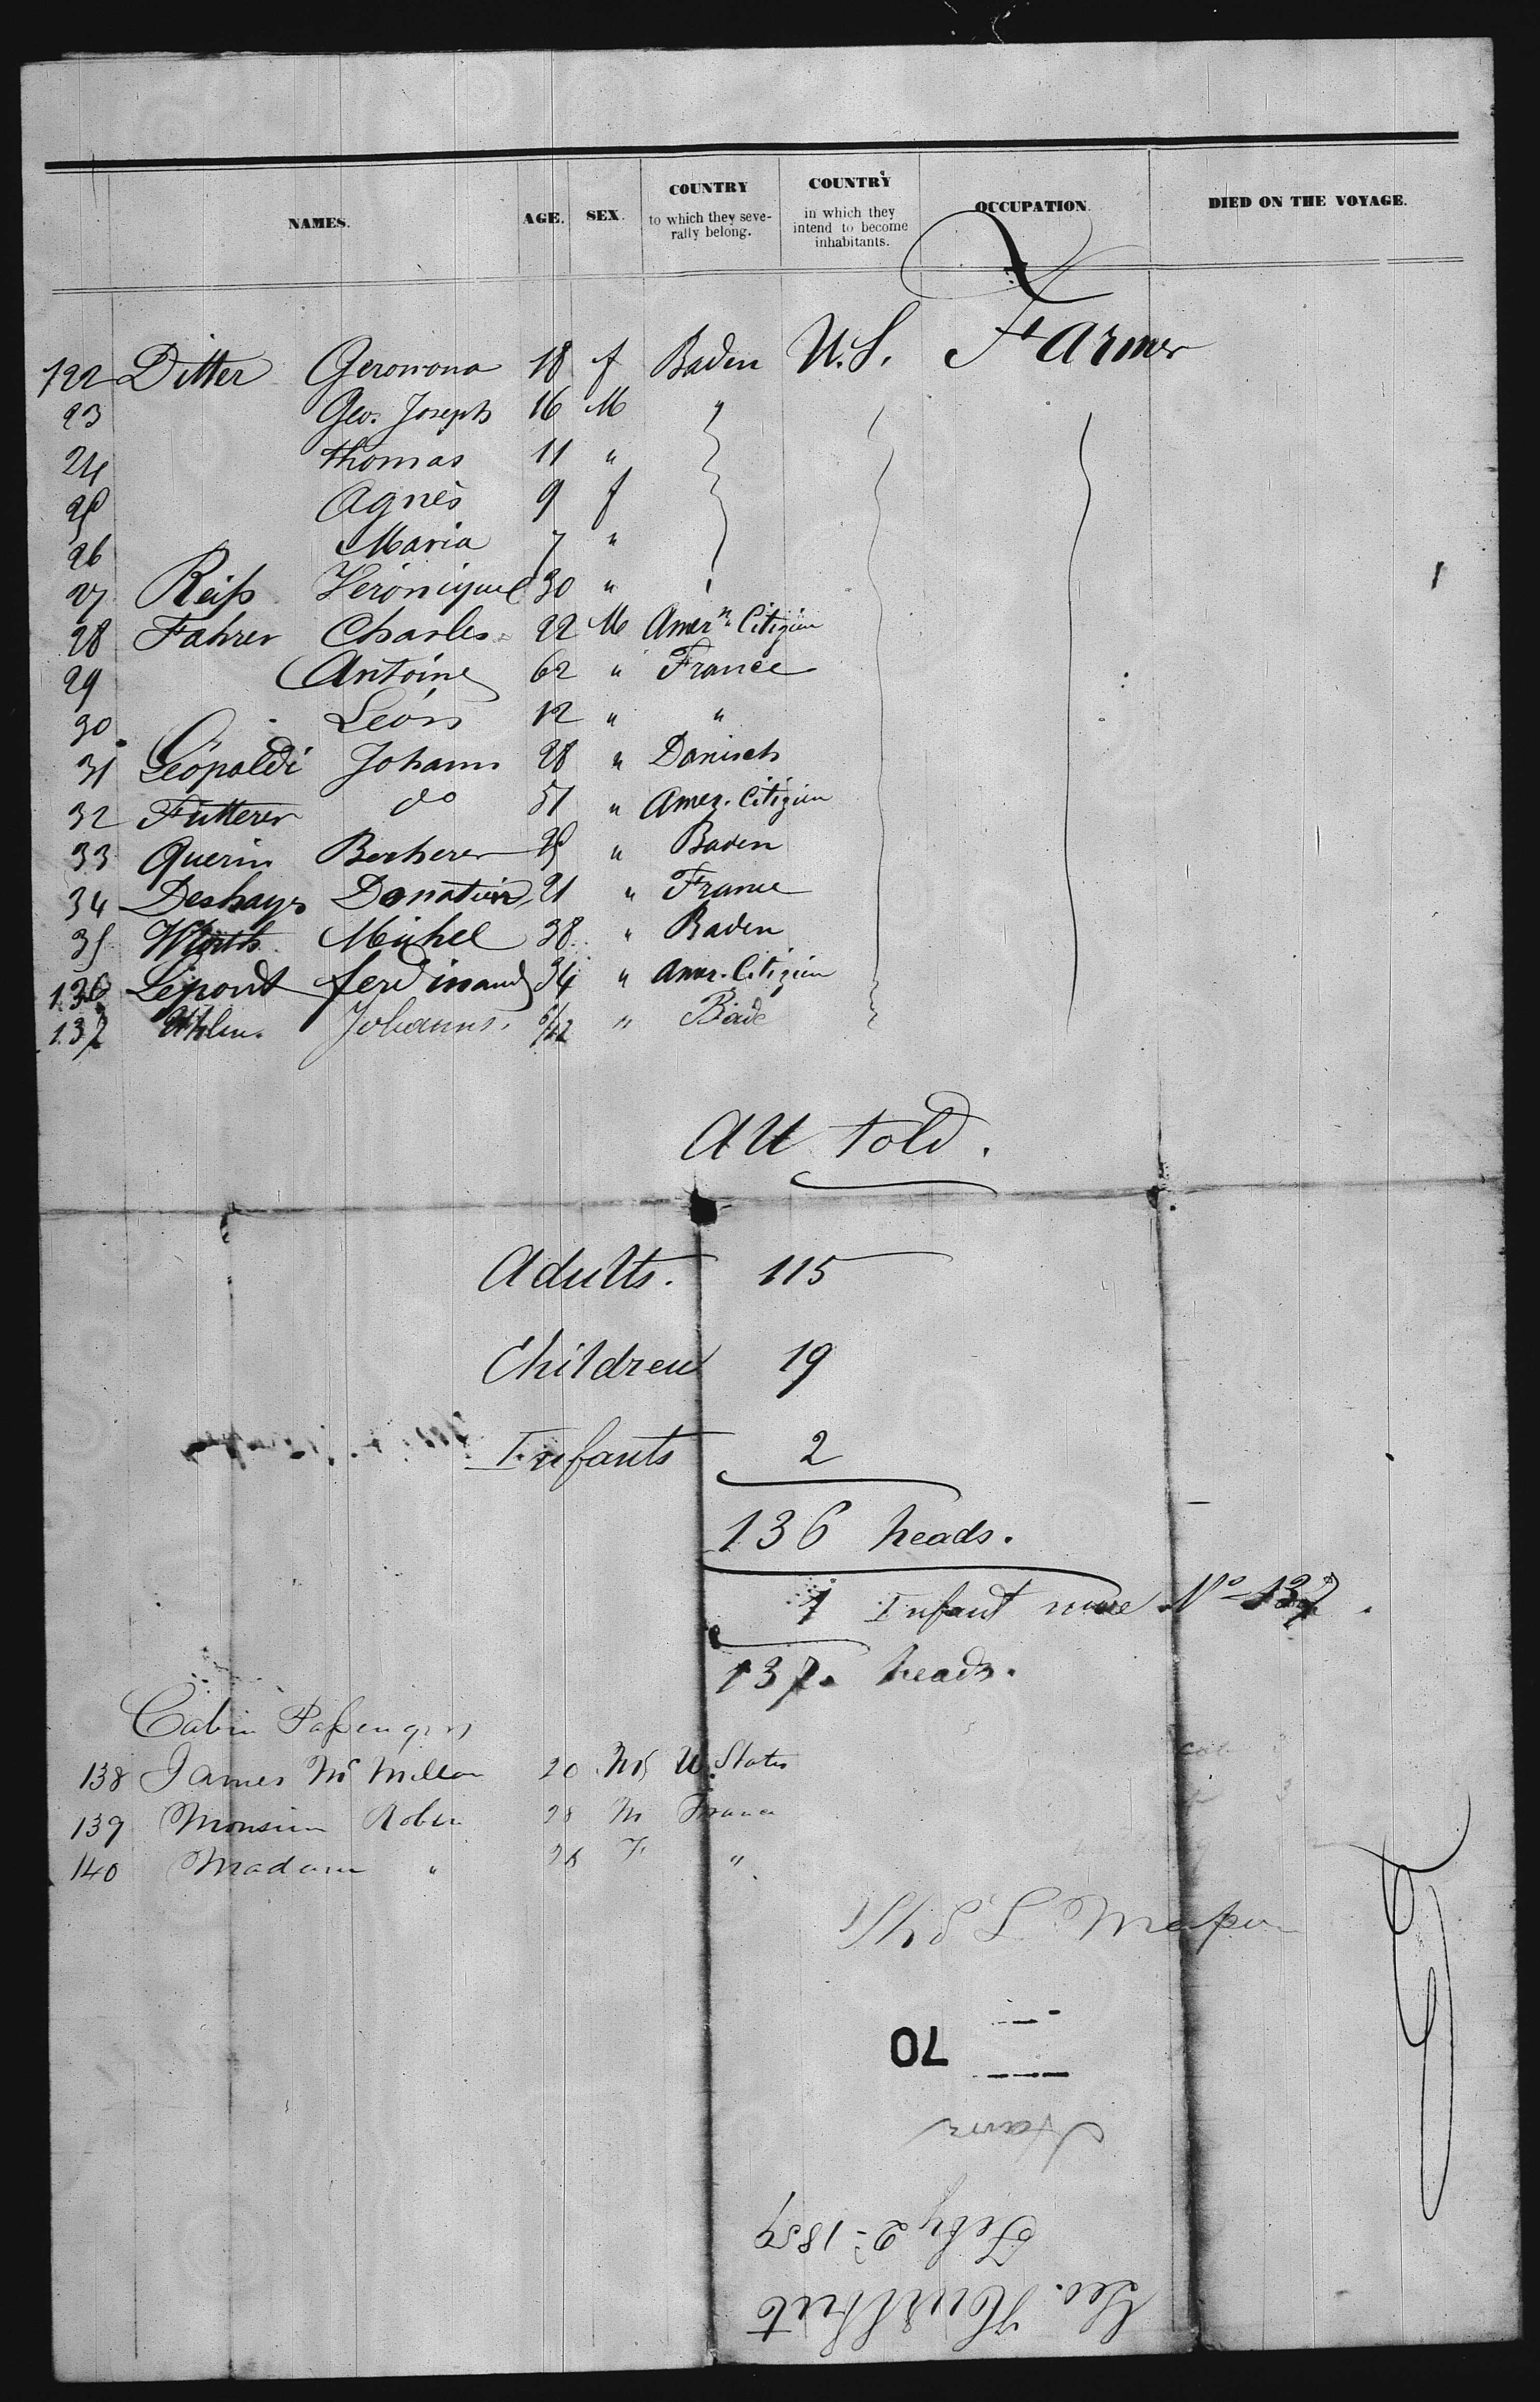 NAMES. AGE. SEX. COUNTRY to which they severally belong. COUNTRY in which they intend to become inhabitants. OCCUPATION. DIED ON THE VOYAGE.
122 Ditter Geronona 18 f Baden U.S. Farmer
23 Geo. Joseph 16 M "
24 Thomas 11 "
25 Agnès 9 f
26 Maria 7 "
27 Reiss Véronique 30 "
28 Fahrer Charles 22 M Amern Citizien
29 Antoine 62 " France
30 Léon 12 " "
31 Léopoldi Johann 28 " Danisch
32 Futterer do 51 " Amer. Citizien
33 Querin Bercherer 25 " Baden
34 Deshays Donatien 21 " France
35 Wirth Michel 38 " Baden
136 Lepont ferdinand 34 " Amer. Citizien
137 Johanns. 6/12 " Bade
All told.
Adults. 115
Children 19
Infants 2
136 heads.
1 Infant more No 137.
137. heads.
Cabin Passengers
138 James Mc Millan 20 M U. States
139 Monsieur Robin 28 M France
140 Madam " 26 F "
70
Havre
Feby 2 - 1857
Geo. Hurlbut